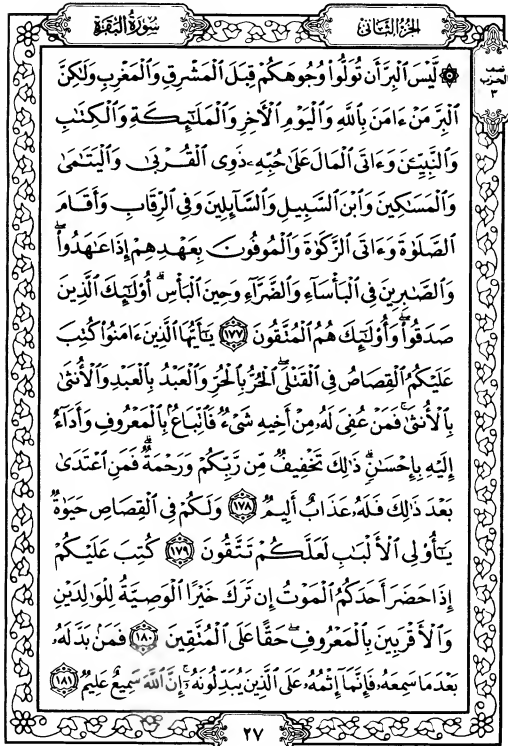 سُورَةُ البَقَرَةِ
الجُزْءُ الثَّانِي
نصف
الحزب
٣
۞ لَّيْسَ ٱلْبِرَّ أَن تُوَلُّوا۟ وُجُوهَكُمْ قِبَلَ ٱلْمَشْرِقِ وَٱلْمَغْرِبِ وَلَٰكِنَّ
ٱلْبِرَّ مَنْ ءَامَنَ بِٱللَّهِ وَٱلْيَوْمِ ٱلْءَاخِرِ وَٱلْمَلَٰٓئِكَةِ وَٱلْكِتَٰبِ
وَٱلنَّبِيِّۦنَ وَءَاتَى ٱلْمَالَ عَلَىٰ حُبِّهِۦ ذَوِى ٱلْقُرْبَىٰ وَٱلْيَتَٰمَىٰ
وَٱلْمَسَٰكِينَ وَٱبْنَ ٱلسَّبِيلِ وَٱلسَّآئِلِينَ وَفِى ٱلرِّقَابِ وَأَقَامَ
ٱلصَّلَوٰةَ وَءَاتَى ٱلزَّكَوٰةَ وَٱلْمُوفُونَ بِعَهْدِهِمْ إِذَا عَٰهَدُوا۟ ۖ
وَٱلصَّٰبِرِينَ فِى ٱلْبَأْسَآءِ وَٱلضَّرَّآءِ وَحِينَ ٱلْبَأْسِ ۗ أُو۟لَٰٓئِكَ ٱلَّذِينَ
صَدَقُوا۟ ۖ وَأُو۟لَٰٓئِكَ هُمُ ٱلْمُتَّقُونَ ١٧٧ يَٰٓأَيُّهَا ٱلَّذِينَ ءَامَنُوا۟ كُتِبَ
عَلَيْكُمُ ٱلْقِصَاصُ فِى ٱلْقَتْلَى ۖ ٱلْحُرُّ بِٱلْحُرِّ وَٱلْعَبْدُ بِٱلْعَبْدِ وَٱلْأُنثَىٰ
بِٱلْأُنثَىٰ ۚ فَمَنْ عُفِىَ لَهُۥ مِنْ أَخِيهِ شَىْءٌ فَٱتِّبَاعٌۢ بِٱلْمَعْرُوفِ وَأَدَآءٌ
إِلَيْهِ بِإِحْسَٰنٍ ۗ ذَٰلِكَ تَخْفِيفٌ مِّن رَّبِّكُمْ وَرَحْمَةٌ ۗ فَمَنِ ٱعْتَدَىٰ
بَعْدَ ذَٰلِكَ فَلَهُۥ عَذَابٌ أَلِيمٌ ١٧٨ وَلَكُمْ فِى ٱلْقِصَاصِ حَيَوٰةٌ
يَٰٓأُو۟لِى ٱلْأَلْبَٰبِ لَعَلَّكُمْ تَتَّقُونَ ١٧٩ كُتِبَ عَلَيْكُمْ
إِذَا حَضَرَ أَحَدَكُمُ ٱلْمَوْتُ إِن تَرَكَ خَيْرًا ٱلْوَصِيَّةُ لِلْوَٰلِدَيْنِ
وَٱلْأَقْرَبِينَ بِٱلْمَعْرُوفِ ۖ حَقًّا عَلَى ٱلْمُتَّقِينَ ١٨٠ فَمَنۢ بَدَّلَهُۥ
بَعْدَمَا سَمِعَهُۥ فَإِنَّمَآ إِثْمُهُۥ عَلَى ٱلَّذِينَ يُبَدِّلُونَهُۥٓ ۚ إِنَّ ٱللَّهَ سَمِيعٌ عَلِيمٌ ١٨١
٢٧